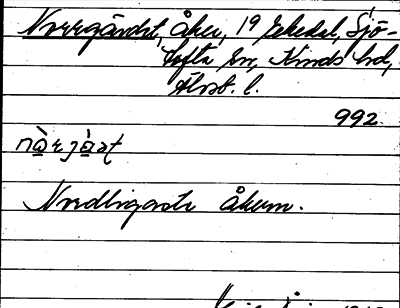 Norrgärdet, åker, 19 Ekedal, Sjö-
tofta sn, Kinds hd,
Älvsb. l.
992.
Nordligaste åkern.